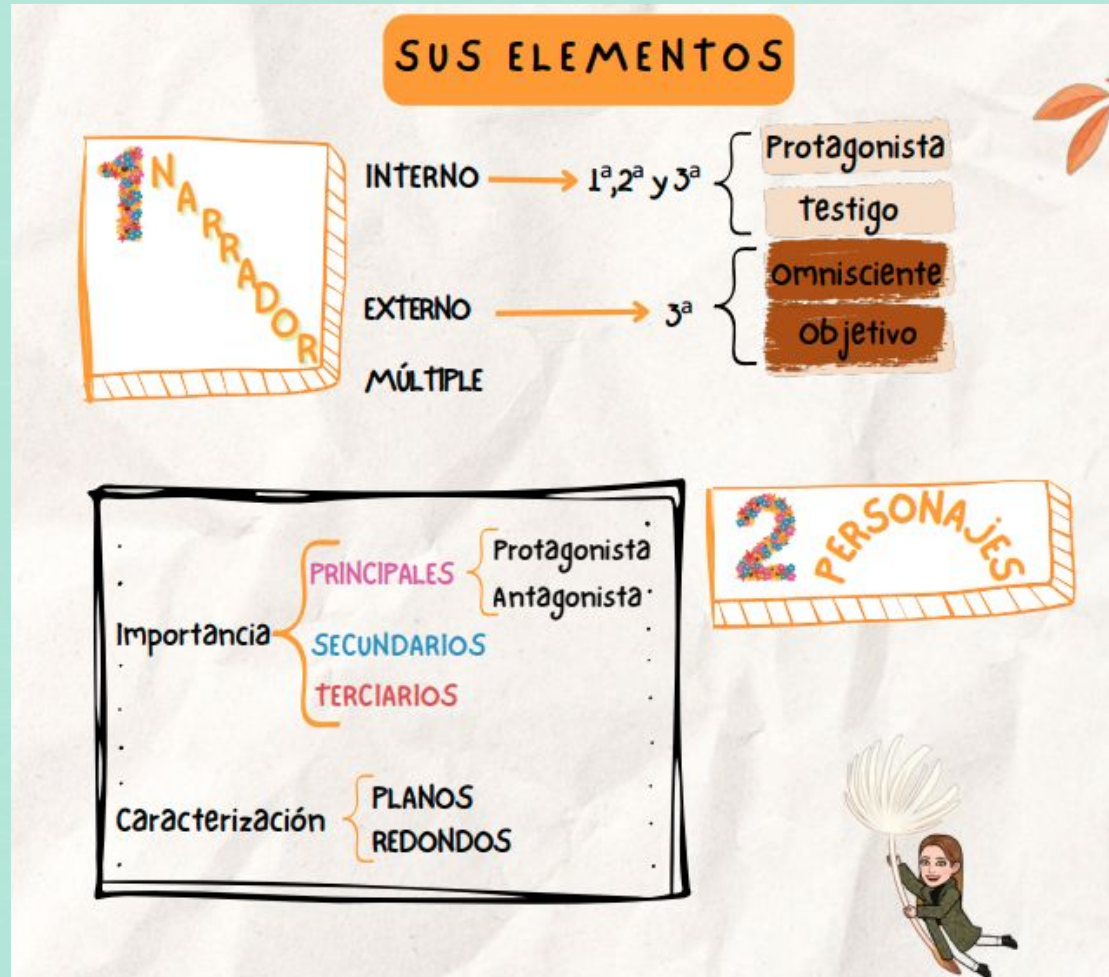 SUS ELEMENTOS
1 NARRADOR
INTERNO 1ª,2ª y 3ª
Protagonista
Testigo
EXTERNO 3ª
Omnisciente
Objetivo
MÚLTIPLE
2 PERSONAJES
Importancia
PRINCIPALES
Protagonista
Antagonista
SECUNDARIOS
TERCIARIOS
Caracterización
PLANOS
REDONDOS